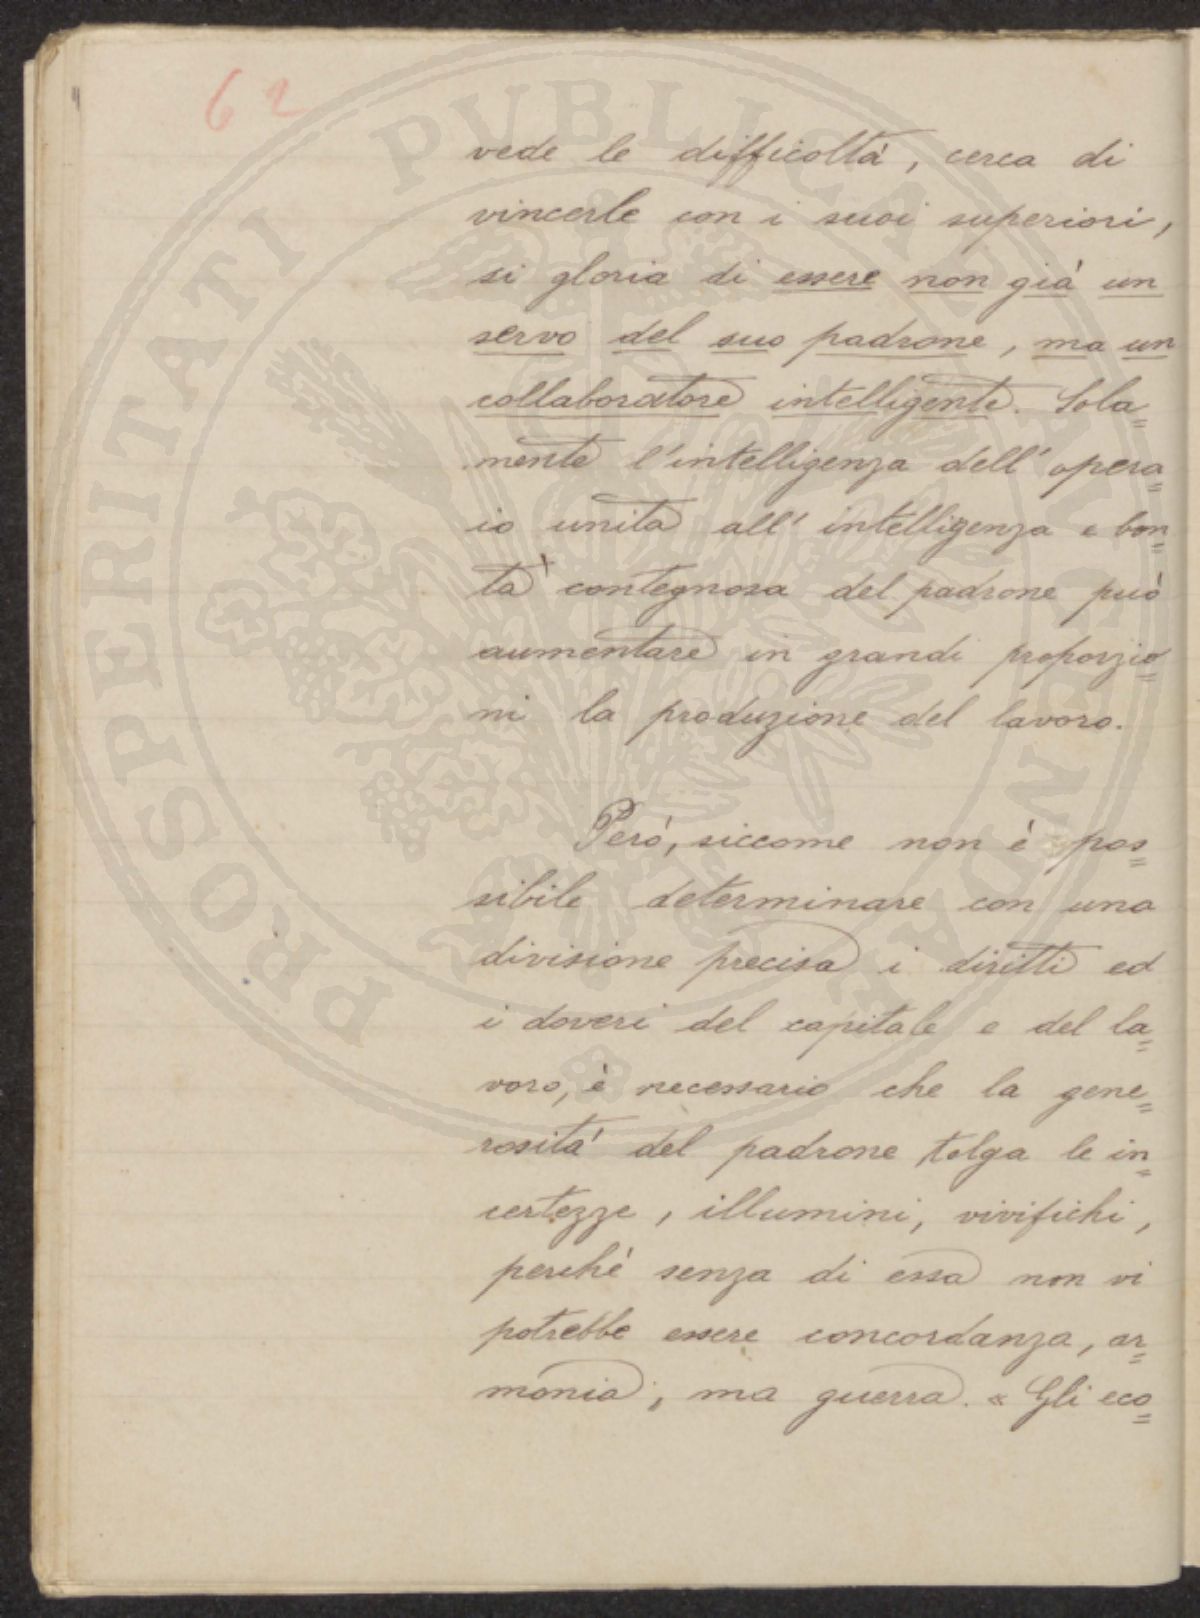 62
vede le difficoltà, cerca di
vincerle con i suoi superiori,
si gloria di essere non già un
servo del suo padrone, ma un
collaboratore intelligente. Sola=
mente l'intelligenza dell'opera=
io unita all'intelligenza e bon=
tà contegnosa del padrone può
aumentare in grandi proporzio=
ni la produzione del lavoro.
Però, siccome non è pos=
sibile determinare con una
divisione precisa i diritti ed
i doveri del capitale e del la=
voro, è necessario che la gene=
rosità del padrone tolga le in=
certezze, illumini, vivifichi,
perché senza di essa non vi
potrebbe essere concordanza, ar=
monia, ma guerra. « Gli eco=
PROSPERITATI PUBLICAE AUGENDAE